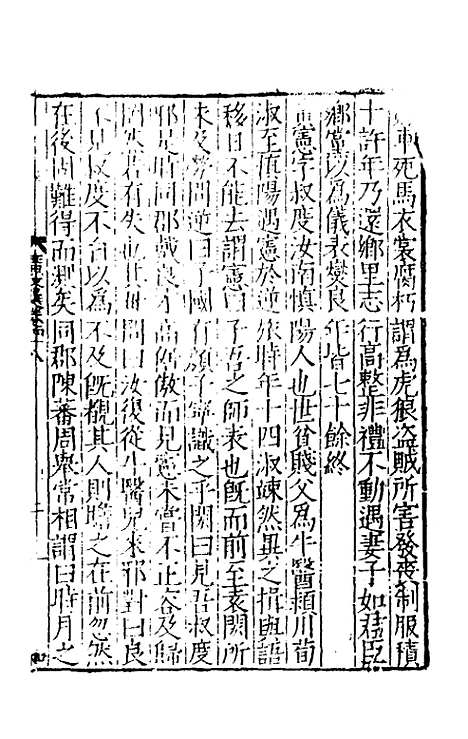 車死馬衣裳腐朽謂為虎狼盗賊所害發喪制服積
十許年乃還鄉里志行高整非禮不動遇妻子如君臣
鄉黨以為儀表燮良年皆七十餘終
黄憲字叔度汝南慎陽人也世貧賤父為牛醫潁川荀
淑至慎陽遇憲於逆旅時年十四淑竦然異之揖與語
移日不能去謂憲曰子吾之師表也旣而前至袁閎所
未及勞問逆曰子國有顏子寧識之乎閎曰見吾叔度
邪是時同郡戴良才高倨傲而見憲未嘗不正容及歸
罔然若有失也其母問曰汝復從牛醫兒來邪對曰良
不見叔度不自以為不及旣覩其人則瞻之在前忽然
在後固難得而測矣同郡陳蕃周舉常相謂曰時月之